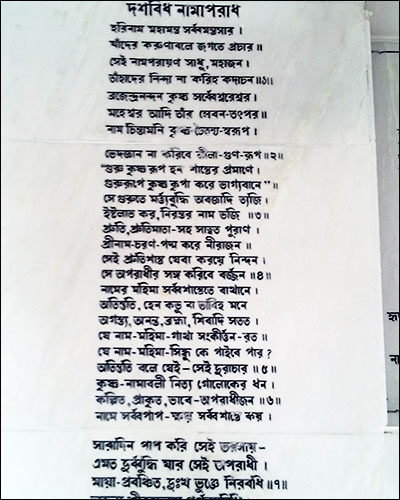 দশবিধ নামাপরাধ
হরিনাম মহামন্ত্র সর্ব্বমন্ত্রসার ।
যাঁদের করুণাবলে জগতে প্রচার ॥
সেই নামপরায়ণ সাধু, মহাজন ।
তাঁহাদের নিন্দা না করিহ কদাচন ॥১॥
ব্রজেন্দ্রনন্দন কৃষ্ণ সর্ব্বেশ্বরেশ্বর ।
মহেশ্বর আদি তাঁর সেবন-তৎপর ॥
নাম চিন্তামনি কৃষ্ণ-চৈতন্য-স্বরূপ ।
ভেদজ্ঞান না করিবে লীলা-গুণ-রূপ ॥২॥
"গুরু কৃষ্ণ রূপ হন শাস্ত্রের প্রমাণে ।
গুরুরূপে কৃষ্ণ কৃপা করে ভাগ্যবানে" ॥
সে গুরুতে মর্ত্ত্যবুদ্ধি অবজ্ঞাদি ত্যজি ।
ইষ্টলাভ কর, নিরন্তর নাম ভজি ॥৩॥
শ্রুতি, শ্রুতিমাতা-সহ সাত্বত পুরাণ ।
শ্রীনাম-চরণ-পদ্ম করে নীরাজন ॥
সেই শ্রুতিশাস্ত্র যেবা করয়ে নিন্দন ।
সে অপরাধীর সঙ্গ করিবে বর্জ্জন ॥৪॥
নামের মহিমা সর্ব্বশাস্ত্রেতে বাখানে ।
অতিস্তুতি, হেন কভু না ভাবিহ মনে
অগস্ত্য, অনন্ত, ব্রহ্মা, শিবাদি সতত ।
যে নাম-মহিমা-গাথা সংকীর্ত্তন-রত ॥
যে নাম-মহিমা-সিন্ধু কে পাইবে পার ?
অতিস্তুতি বলে যেই-সেই দুরাচার ॥৫॥
কৃষ্ণ-নামাবলী নিত্য গোলোকের ধন ।
কল্পিত, প্রাকৃত, ভাবে-অপরাধীজন ॥৬॥
নামে সর্ব্বপাপ-ক্ষয় সর্ব্বশাস্ত্রে কয় ।
সারাদিন পাপ করি সেই ভরসায়-
এমত দুর্ব্বুদ্ধি যার সেই অপরাধী ।
মায়া-প্রবঞ্চিত, দুঃখ ভুঞ্জে নিরবধি ॥৭॥